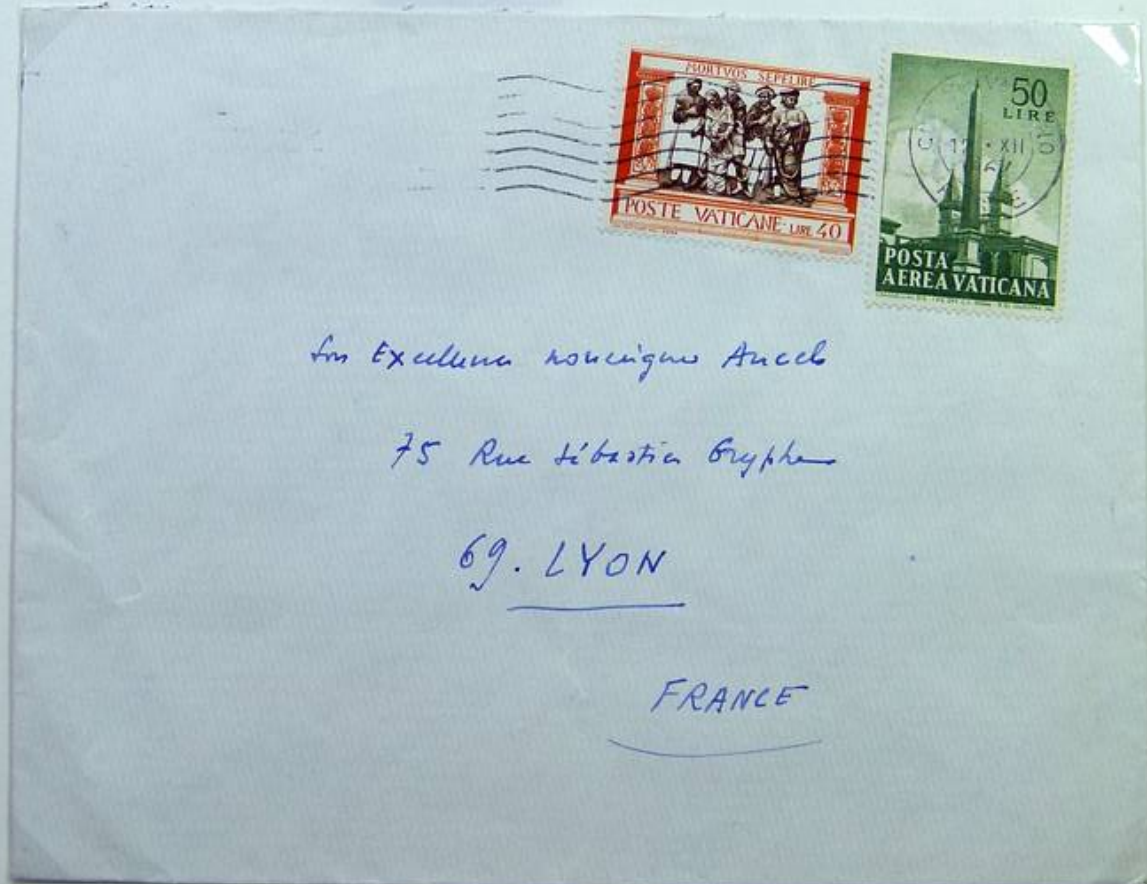 MORTVOS SEPELIRE
POSTE VATICANE LIRE 40
50
LIRE
12 · XII
POSTA
AEREA VATICANA
Son Excellence Monseigneur Ancel
75 Rue Sébastien Gryphe
69. LYON
FRANCE